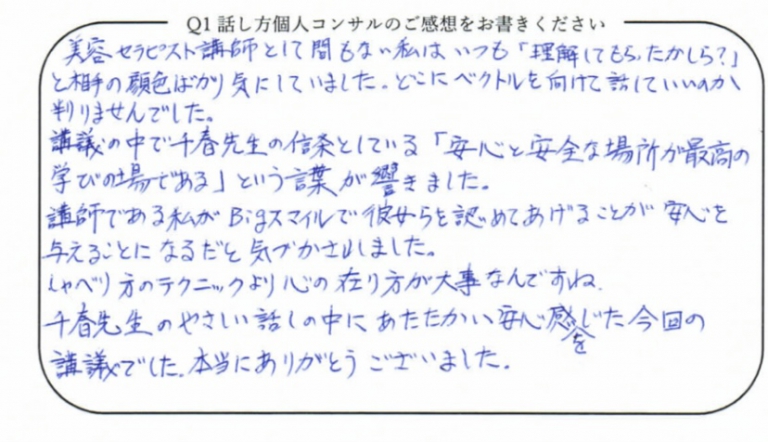 Q1 話し方個人コンサルのご感想をお書きください
美容セラピスト講師として間もない私は、いつも「理解してもらったかしら?」
と相手の顔色ばかり気にしていました。どこにベクトルを向けて話していいのか
判りませんでした。
講議の中で千春先生の信条としている「安心と安全な場所が最高の
学びの場である」という言葉が響きました。
講師である私がBigスマイルで彼女らを認めてあげることが安心を
与えることになるだと気づかされました。
しゃべり方のテクニックより心の在り方が大事なんですね。
千春先生のやさしい話しの中にあたたかい安心感をじた今回の
講議でした。本当にありがとうございました。